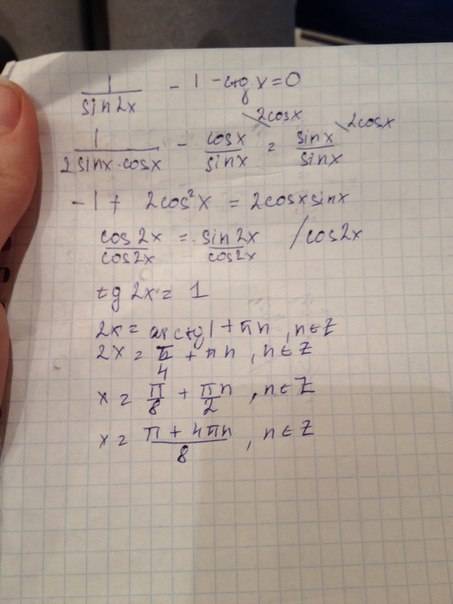 1/sin2x - 1 - ctg x = 0
1/2sinx·cosx - cosx/sinx \2cosx = sinx/sinx \2cosx
-1 + 2cos²x = 2cosxsinx
cos2x/cos2x = sin2x/cos2x /cos2x
tg 2x = 1
2x = arctg1 + πn, n∈Z
2x = π/4 + πn, n∈Z
x = π/8 + πn/2, n∈Z
x = π + 4πn/8, n∈Z